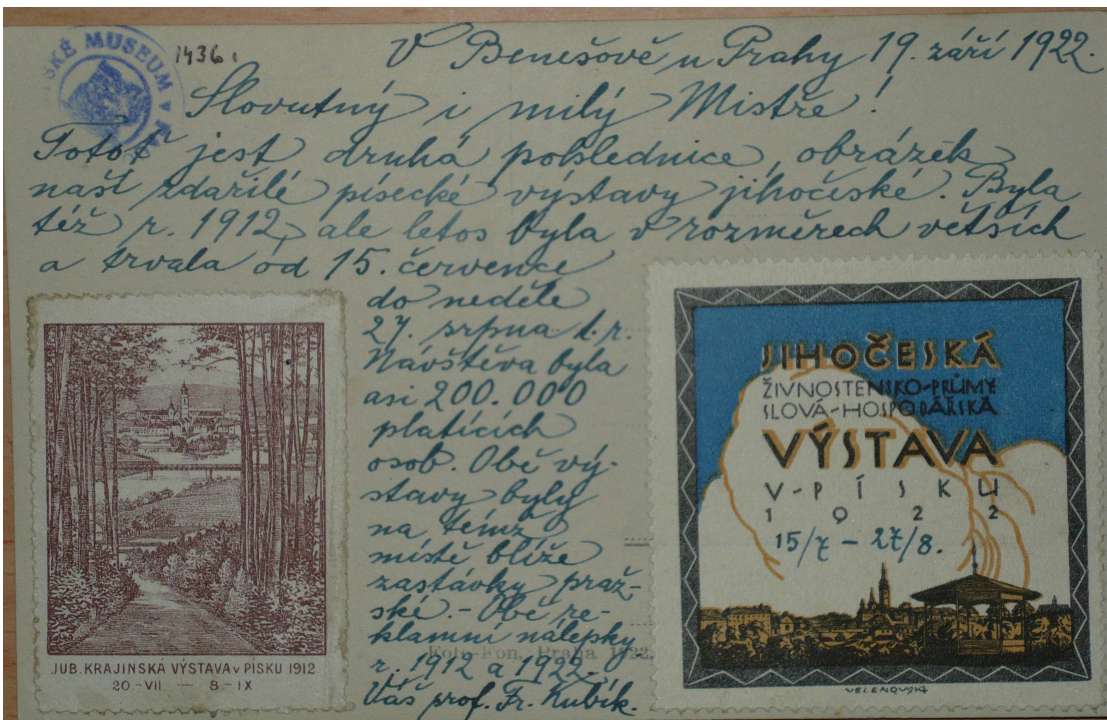 SKÉ MUSEUM
1436.
V Benešově u Prahy 19. září 1922.
Slovutný i milý Mistře!
Totoť jest druhá pohlednice, obrázek
naší zdařilé písecké výstavy jihočeské. Byla
též r. 1912, ale letos byla v rozměrech větších
a trvala od 15. července
do neděle
27. srpna t. r.
Návštěva byla
asi 200.000
platících
osob. Obě vý-
stavy byly
na témž
místě blíže
zastávky praž-
ské. - Obě re-
klamní nálepky
r. 1912 a 1922.
Váš prof. Fr. Kubík.
Foto-Fon, Praha 1922.
JUB. KRAJINSKÁ VÝSTAVA v PÍSKU 1912
20-VII — 8-IX
JIHOČESKÁ
ŽIVNOSTENSKO-PRŮMY-
SLOVÁ-HOSPODÁŘSKÁ
VÝSTAVA
V-PÍSKU
1922
15/7 - 27/8.
VELENOVSKÝ